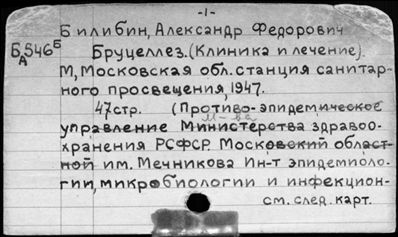 -1-
Билибин, Александр Федорович
БА546Б
Бруцеллез. (Клиника и лечение).
М, Московская обл. станция санитар-
ного просвещения, 1947.
47 стр. (Противо-эпидемическое
М-ва
управление Министерства здравоо-
хранения РСФСР. Московский област-
ной им. Мечникова Ин-т эпидемиоло-
гии, микробиологии и инфекцион-
см. след. карт.